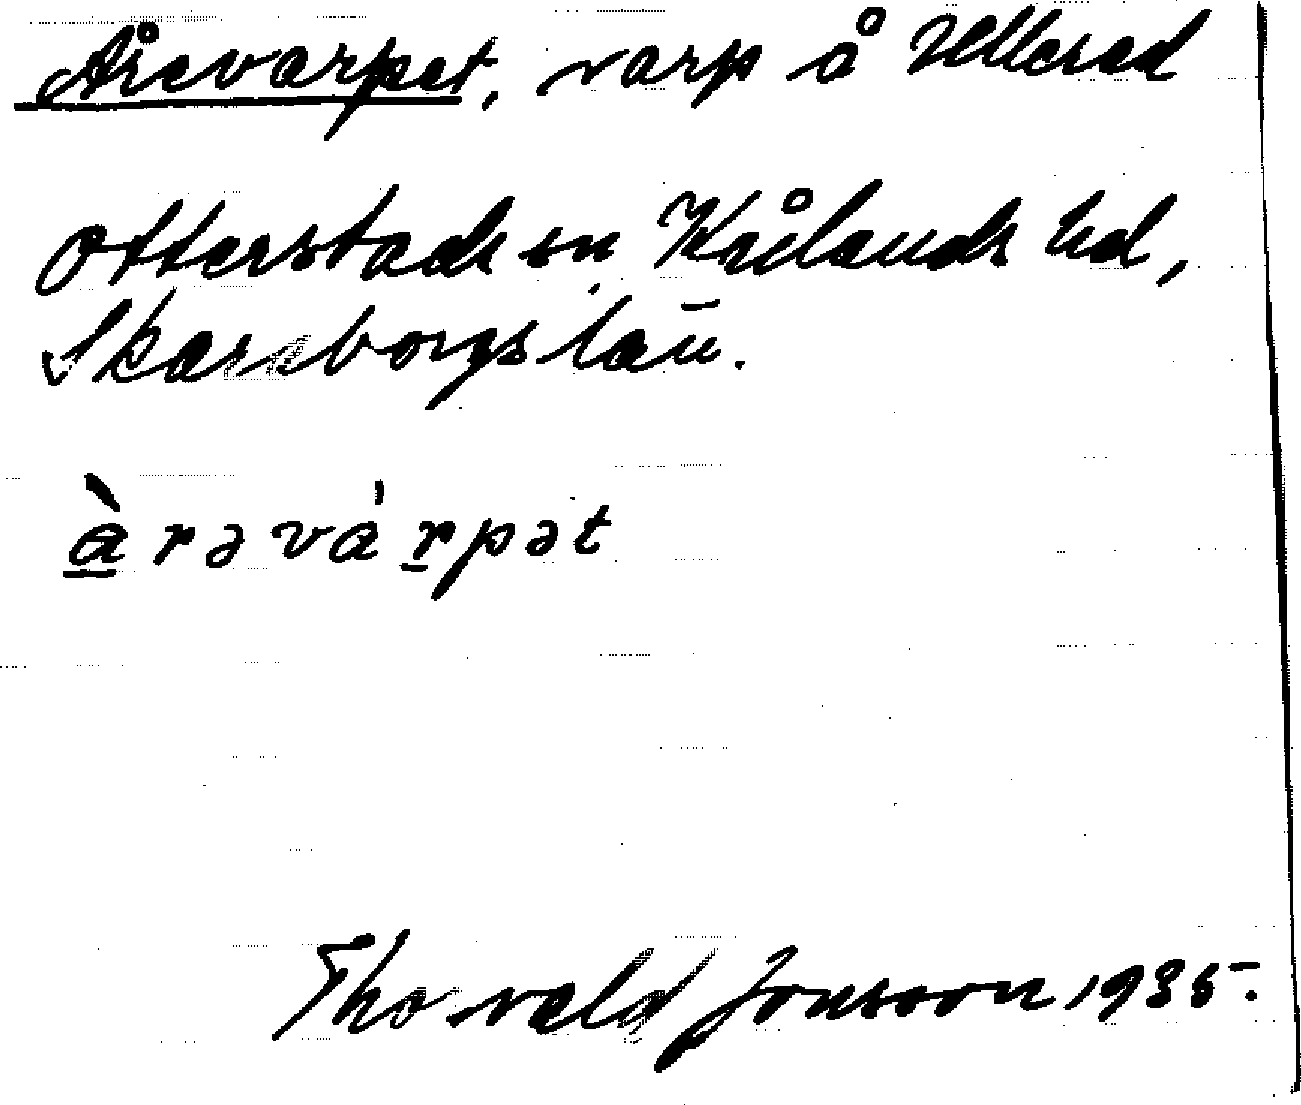 Årevarpet, varp å Ullerud
Otterstads sn Kållands hd,
Skaraborgs län.
àrəvárpət
Thorvald Jonsson 1935.